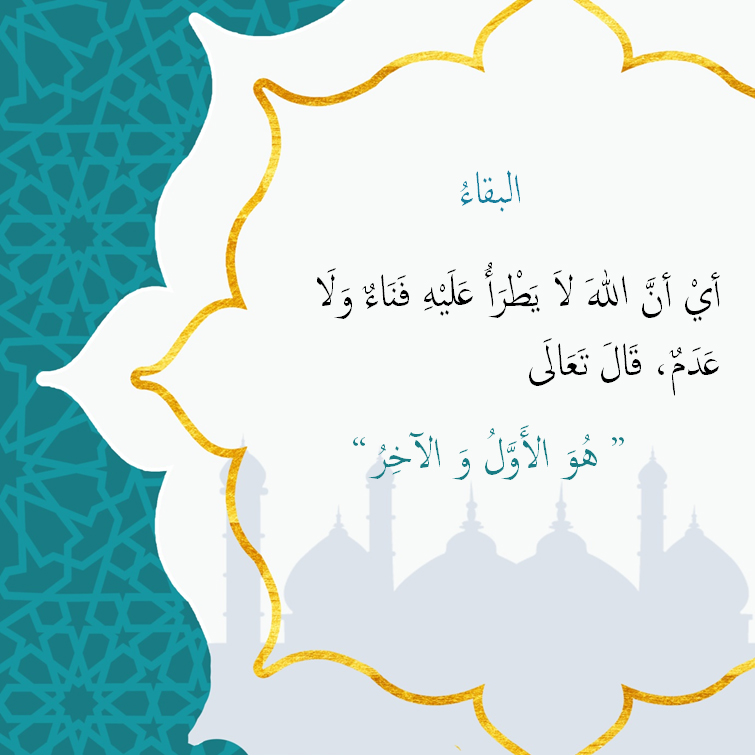 البقاءُ
أيْ أنَّ اللهَ لاَ يَطْرَأُ عَلَيْهِ فَنَاءٌ وَلَا
عَدَمٌ، قَالَ تَعَالَى
” هُوَ الأَوَّلُ وَ الآخِرُ “